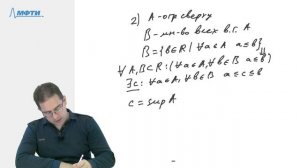 МФТИ
2) A-огр сверху
B-мн-во всех в.г. A
B={b∈R | ∀a∈A a≤b}
∀A,B⊂R: (∀a∈A,∀b∈B a≤b)
∃c: ∀a∈A,∀b∈B a≤c≤b
c = sup A